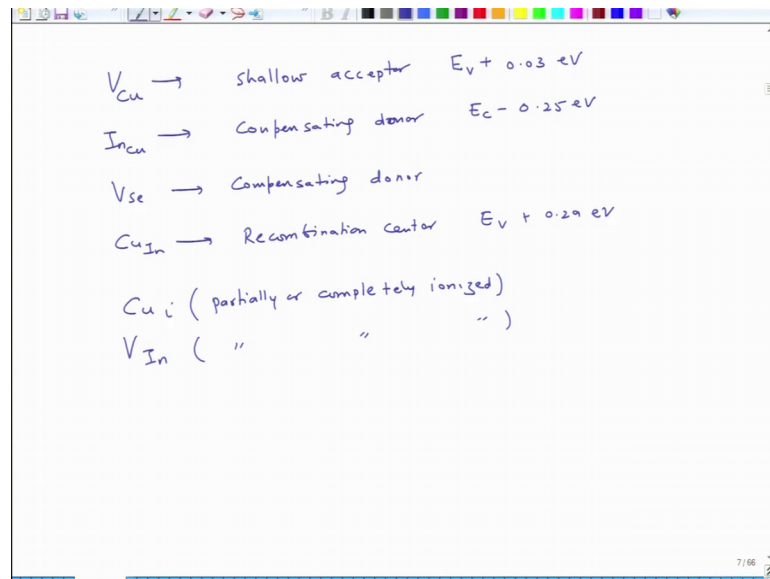 V_Cu → shallow acceptor E_V + 0.03 eV
In_Cu → Compensating donor E_C - 0.25 eV
V_Se → Compensating donor
Cu_In → Recombination center E_V + 0.29 eV
Cu_i ( partially or completely ionized)
V_In ( " " " )
7/66